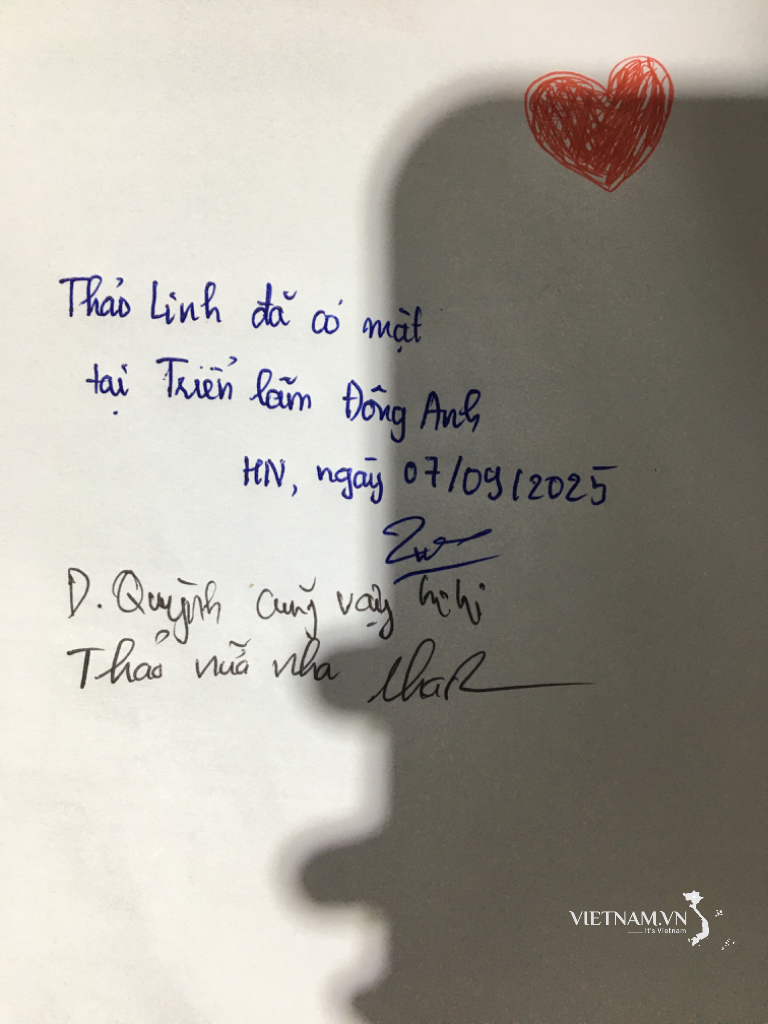 Thảo Linh đã có mặt
tại Triển lãm Đông Anh
HN, ngày 07/09/2025
D. Quỳnh cũng vậy hihi
Thảo nữa nha
VIETNAM.VN
It's Vietnam